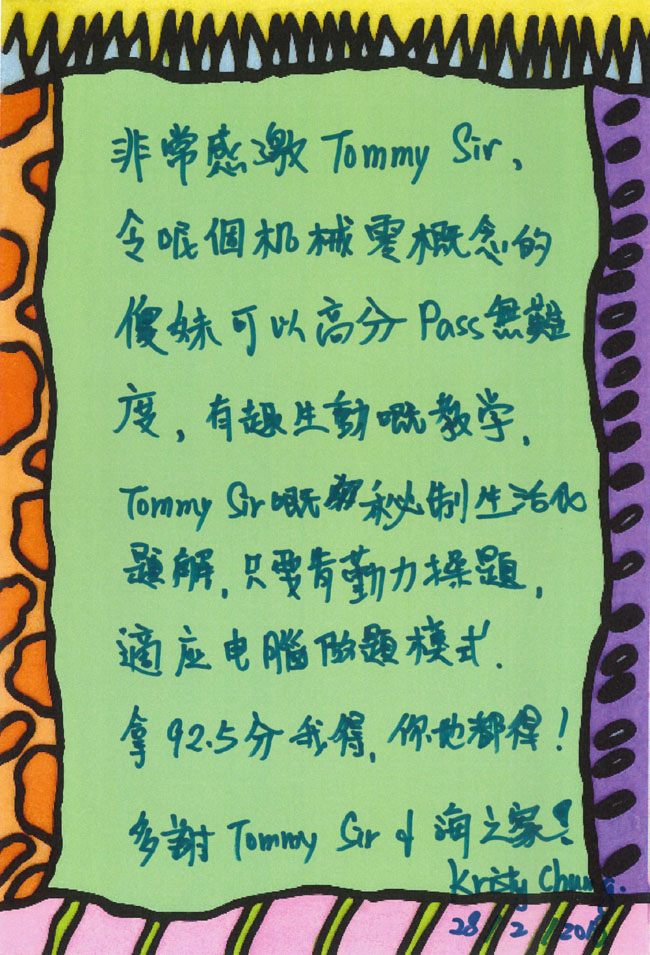 非常感激 Tommy Sir、
令呢個机械零概念的
傻妹可以高分 Pass 無難
度，有趣生動嘅教学，
Tommy Sir 嘅秘制生活化
題解，只要肯勤力操題，
適应电腦做題模式.
拿 92.5分我得，你地都得！
多謝 Tommy Sir & 海之家！
Kristy Cheung.
28 / 2 /